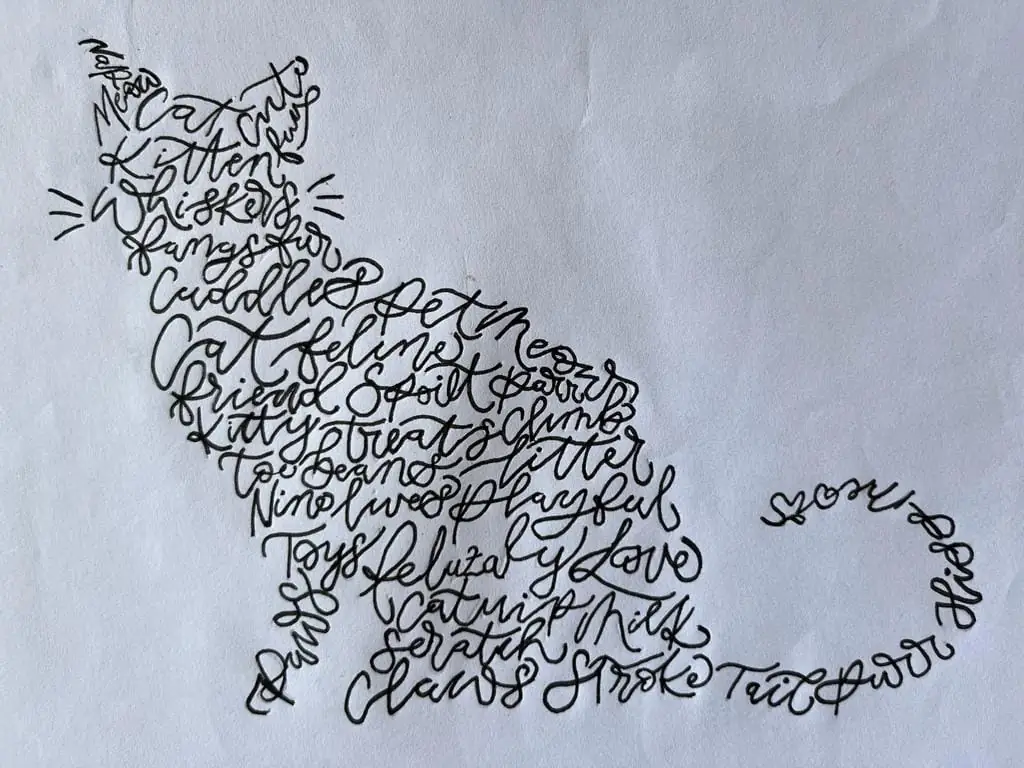 Nap
Meow
Cat Cute
Kitten
Whiskers
fangs fur
Cuddles Pet Meow
Cat feline
friend Spoilt
Kitty treats Climb
toe beans litter
Nine lives Playful
Toys ly Love
Paws
Catnip Milk
Scratch
Claws Stroke Tail Purr Hiss